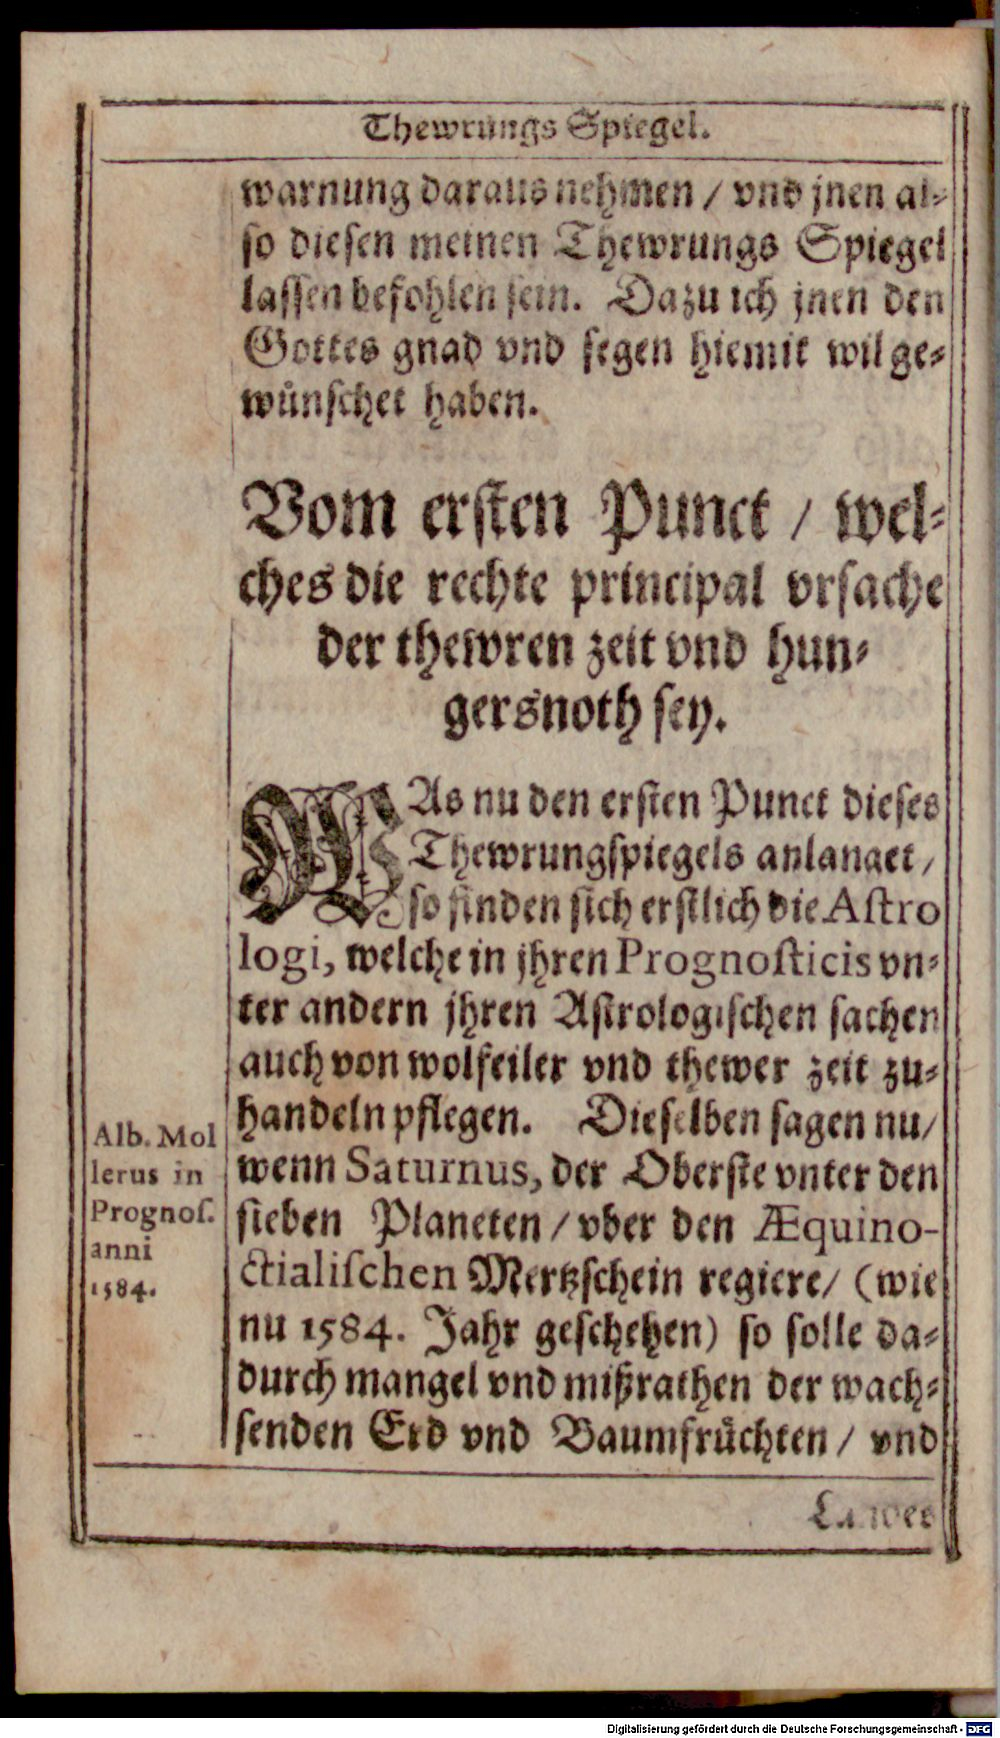 Thewrungs Spiegel.
warnung daraus nehmen / vnd jnen al-
so diesen meinen Thewrungs Spiegel
lassen befohlen sein. Dazu ich jnen den
Gottes gnad vnd segen hiemit wil ge-
wůnschet haben.
Vom ersten Punct / wel-
ches die rechte principal vrsache
der thewren zeit vnd hun-
gersnoth sey.
WAs nu den ersten Punct dieses
Thewrungspiegels anlanget /
so finden sich erstlich die Astro
logi, welche in jhren Prognosticis vn-
ter andern jhren Astrologischen sachen
auch von wolfeiler vnd thewer zeit zu-
handeln pflegen. Dieselben sagen nu /
wenn Saturnus, der Oberste vnter den
sieben Planeten / vber den Æquino-
ctialischen Mertzschein regiere / (wie
nu 1584. Jahr geschehen) so solle da-
durch mangel vnd mißrathen der wach-
senden Erd vnd Baumfrůchten / vnd
Alb. Mol
lerus in
Prognos.
anni
1584.
Digitalisierung gefördert durch die Deutsche Forschungsgemeinschaft - DFG